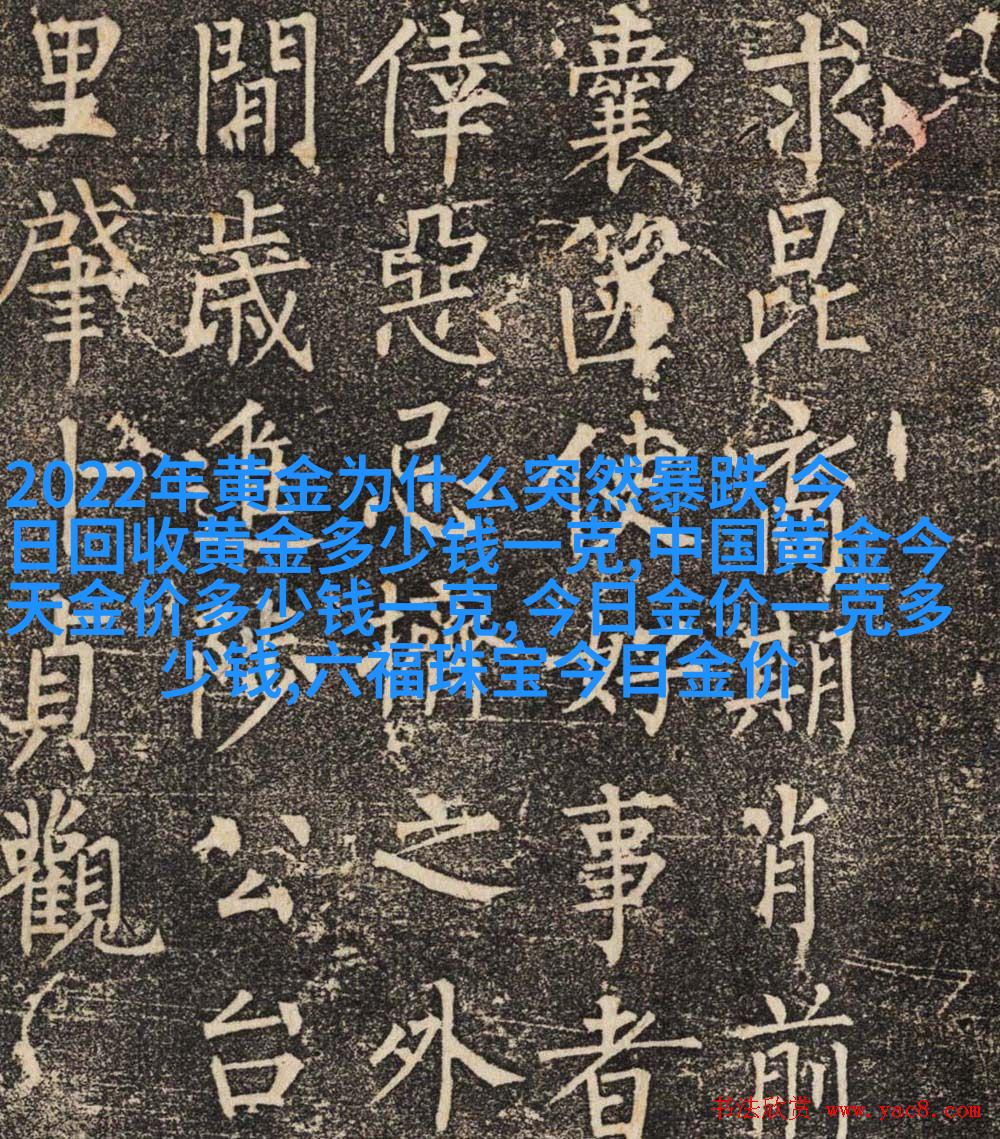 求昆期肖前
囊篋使好事者
倖惡忌之外
閒歲公台
里肇十貞觀
2022年黄金为什么突然暴跌,今
日回收黄金多少钱一克,中国黄金今
天金价多少钱一克,今日金价一克多
少钱,六福珠宝今日金价
书法欣赏 www.yac8.com